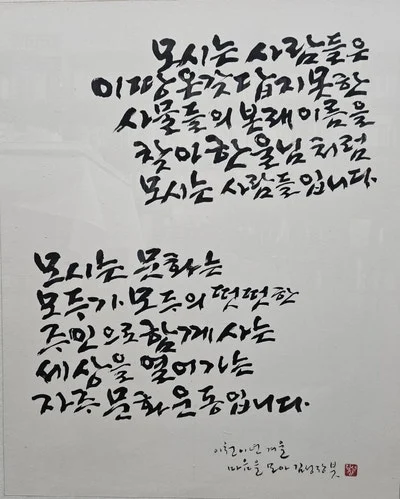 모시는 사람들은
이땅 온갖 답지 못한
사물들의 본래 이름을
찾아 한울님처럼
모시는 사람들입니다.
모시는 문화는
모두가 모두의 떳떳한
주인으로 함께 사는
세상을 열어가는
자주문화운동입니다.
이천이년 겨울
마음을 모아